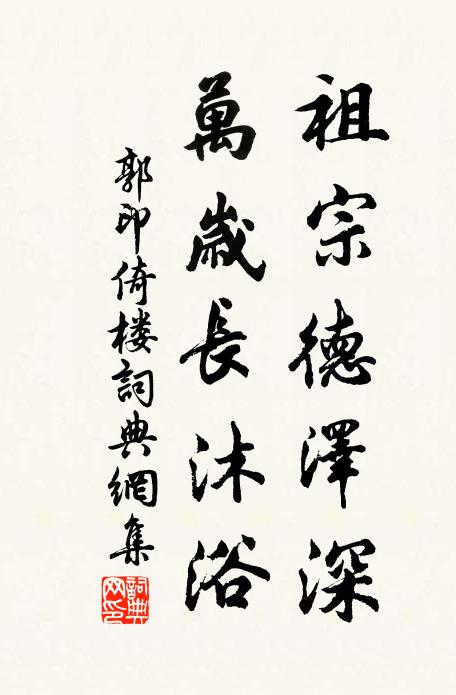 祖宗德澤深
萬歲長沐浴
郭印倚楼詞典網集
詞典网印